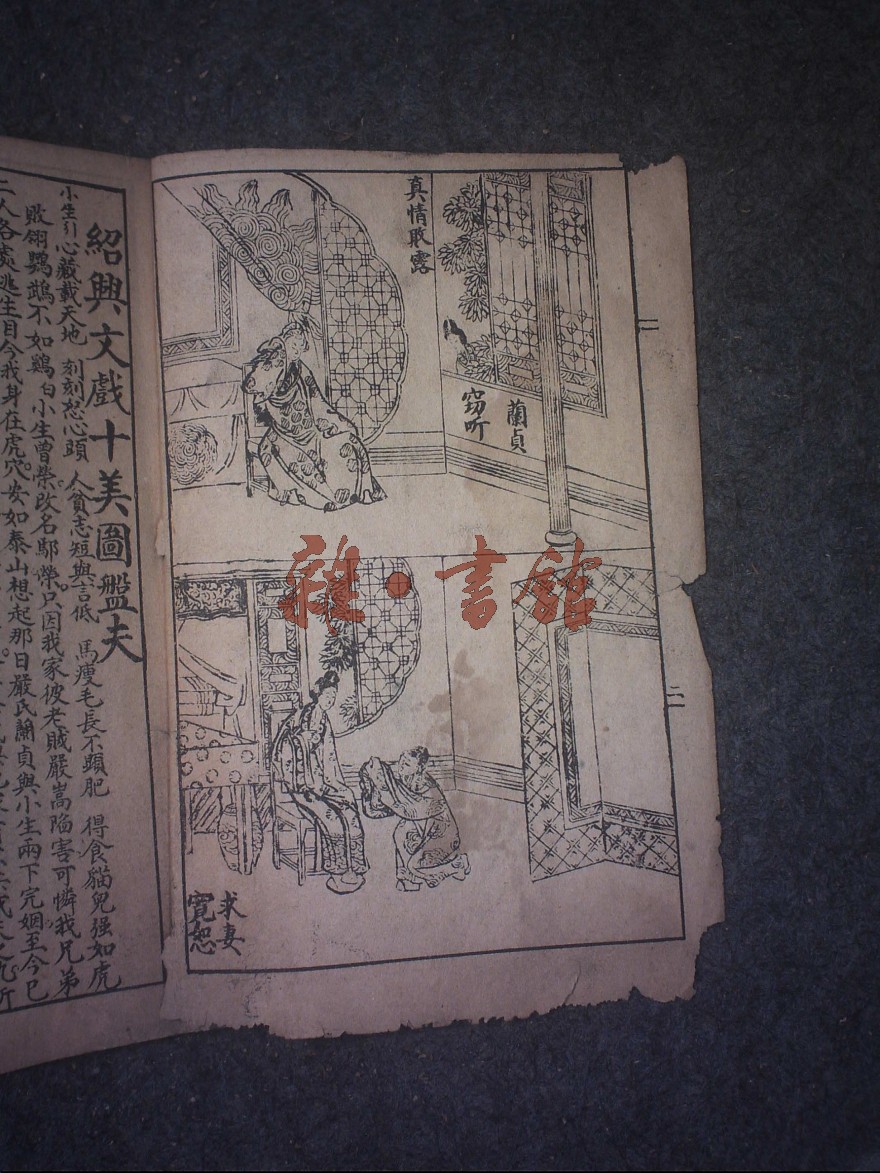 真情敗露
蘭貞
窃听
求妻
寬恕
一
二
紹興文戲十美圖盤夫
小生引心藏載天地 刻刻愁心頭 人貧志短與言低 馬瘦毛長不顕肥 得食貓兒强如虎
敗翎鸚鵡不如鷄白小生曾榮改名鄢榮只因我家彼老賊嚴嵩陷害可憐我兄弟
二人各處逃生目今我身在虎穴安如泰山想起那日嚴氏蘭貞與小生兩下完姻至今已
雜·書館